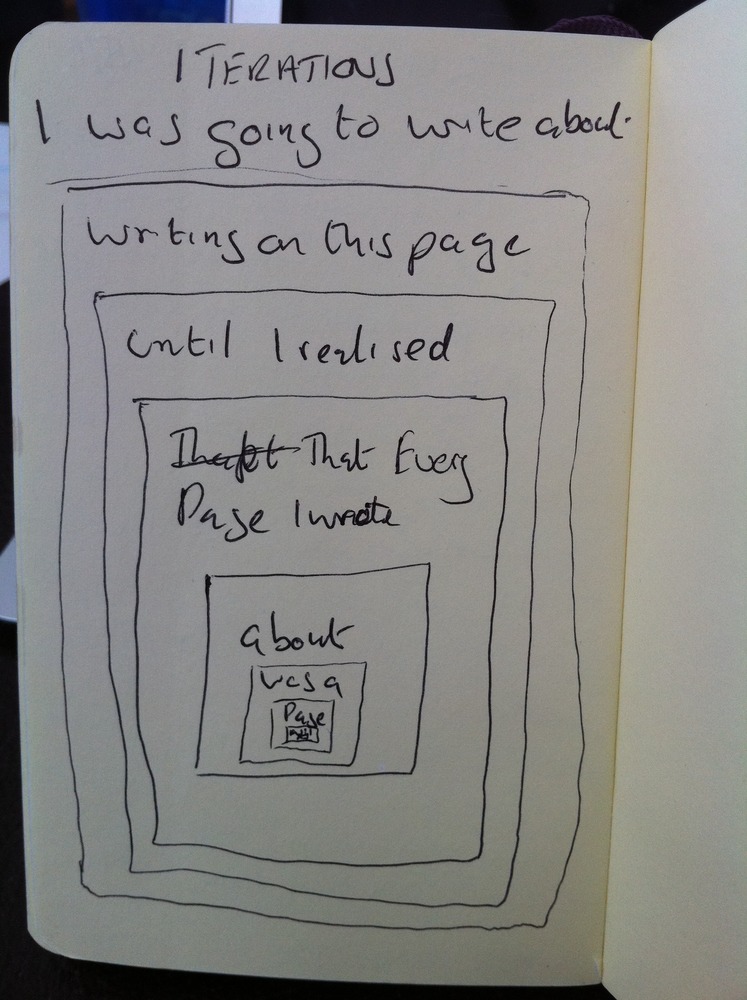 ITERATIONS
I was going to write about
writing on this page
until I realised
That Every
Page I wrote
about
was a
Page